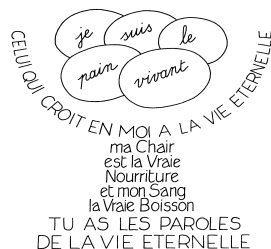 je suis le
pain vivant
CELUI QUI CROIT EN MOI A LA VIE ETERNELLE
ma Chair
est la Vraie
Nourriture
et mon Sang
la Vraie Boisson
TU AS LES PAROLES
DE LA VIE ETERNELLE